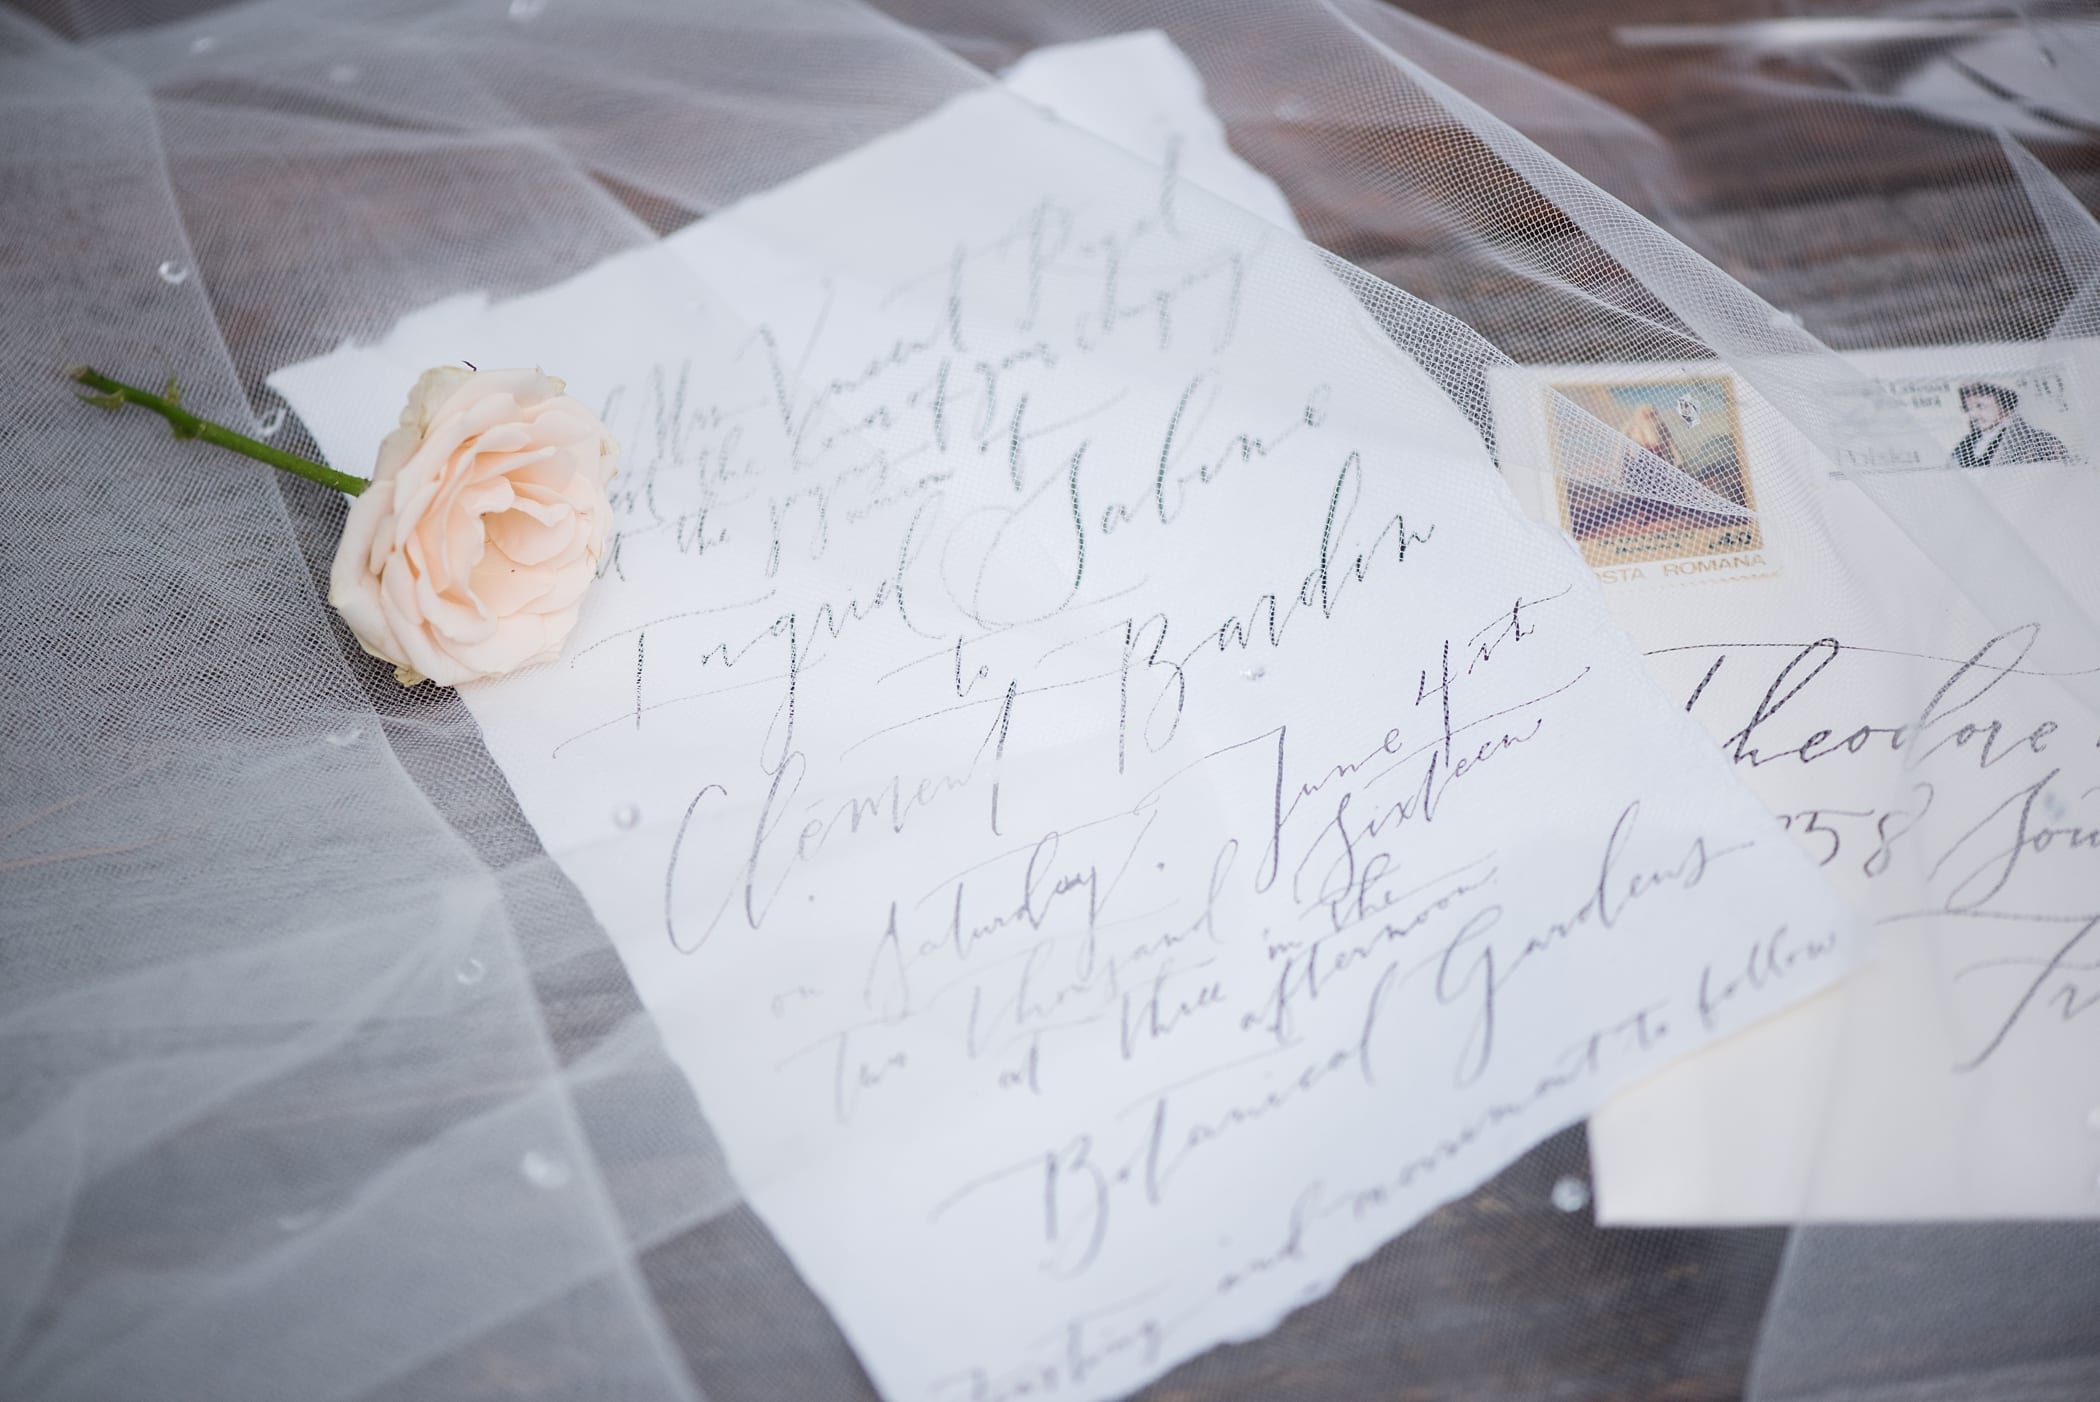 Mrs. Vincent Rigal
the honor of your company
at the joyous union of
Ingrid Sabine
to
Clément Bardin
on Saturday. June 4rth
Two thousand Sixteen
at three in the
afternoon
Botanical Gardens
Feasting and merriment to follow
POSTA ROMANA
Polska
Theodore
358